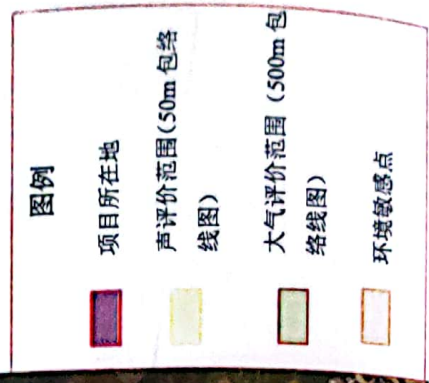 图例
项目所在地
声评价范围(50m 包络
线图)
大气评价范围(500m 包
络线图)
环境敏感点